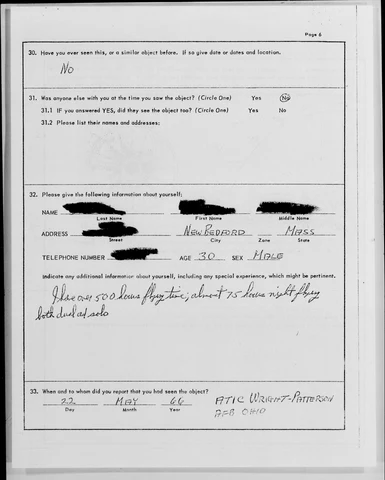 Page 6
30. Have you ever seen this, or a similar object before. If so give date or dates and location.
No
31. Was anyone else with you at the time you saw the object? (Circle One) Yes No
31.1 If you answered YES, did they see the object too? (Circle One) Yes No
31.2 Please list their names and addresses:
32. Please give the following information about yourself:
NAME
Last Name First Name Middle Name
ADDRESS NEW BEDFORD MASS
Street City Zone State
TELEPHONE NUMBER AGE 30 SEX MALE
Indicate any additional information about yourself, including any special experience, which might be pertinent.
I have over 500 hours flying time, almost 75 hours night flying
both dual and solo
33. When and to whom did you report that you had seen the object?
22 MAY 66 ATIC WRIGHT-PATTERSON
Day Month Year AFB OHIO